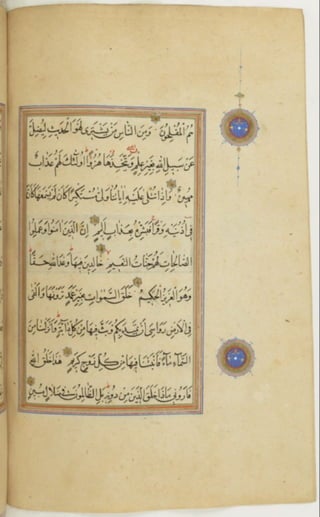 هم المفلحون ومن الناس من يشتري لهو الحديث ليضل
عن سبيل الله بغير علم ويتخذها هزوا أولئك لهم عذاب
مهين وإذا تتلى عليه آياتنا ولى مستكبرا كأن لم يسمعها كأن
في أذنيه وقرا فبشره بعذاب أليم إن الذين آمنوا وعملوا
الصالحات لهم جنات النعيم خالدين فيها وعد الله حقا
وهو العزيز الحكيم خلق السموات بغير عمد ترونها وألقى
في الأرض رواسي أن تميد بكم وبث فيها من كل دابة وأنزلنا من
السماء ماء فأنبتنا فيها من كل زوج كريم هذا خلق الله
فأروني ماذا خلق الذين من دونه بل الظالمون في ضلال مبين